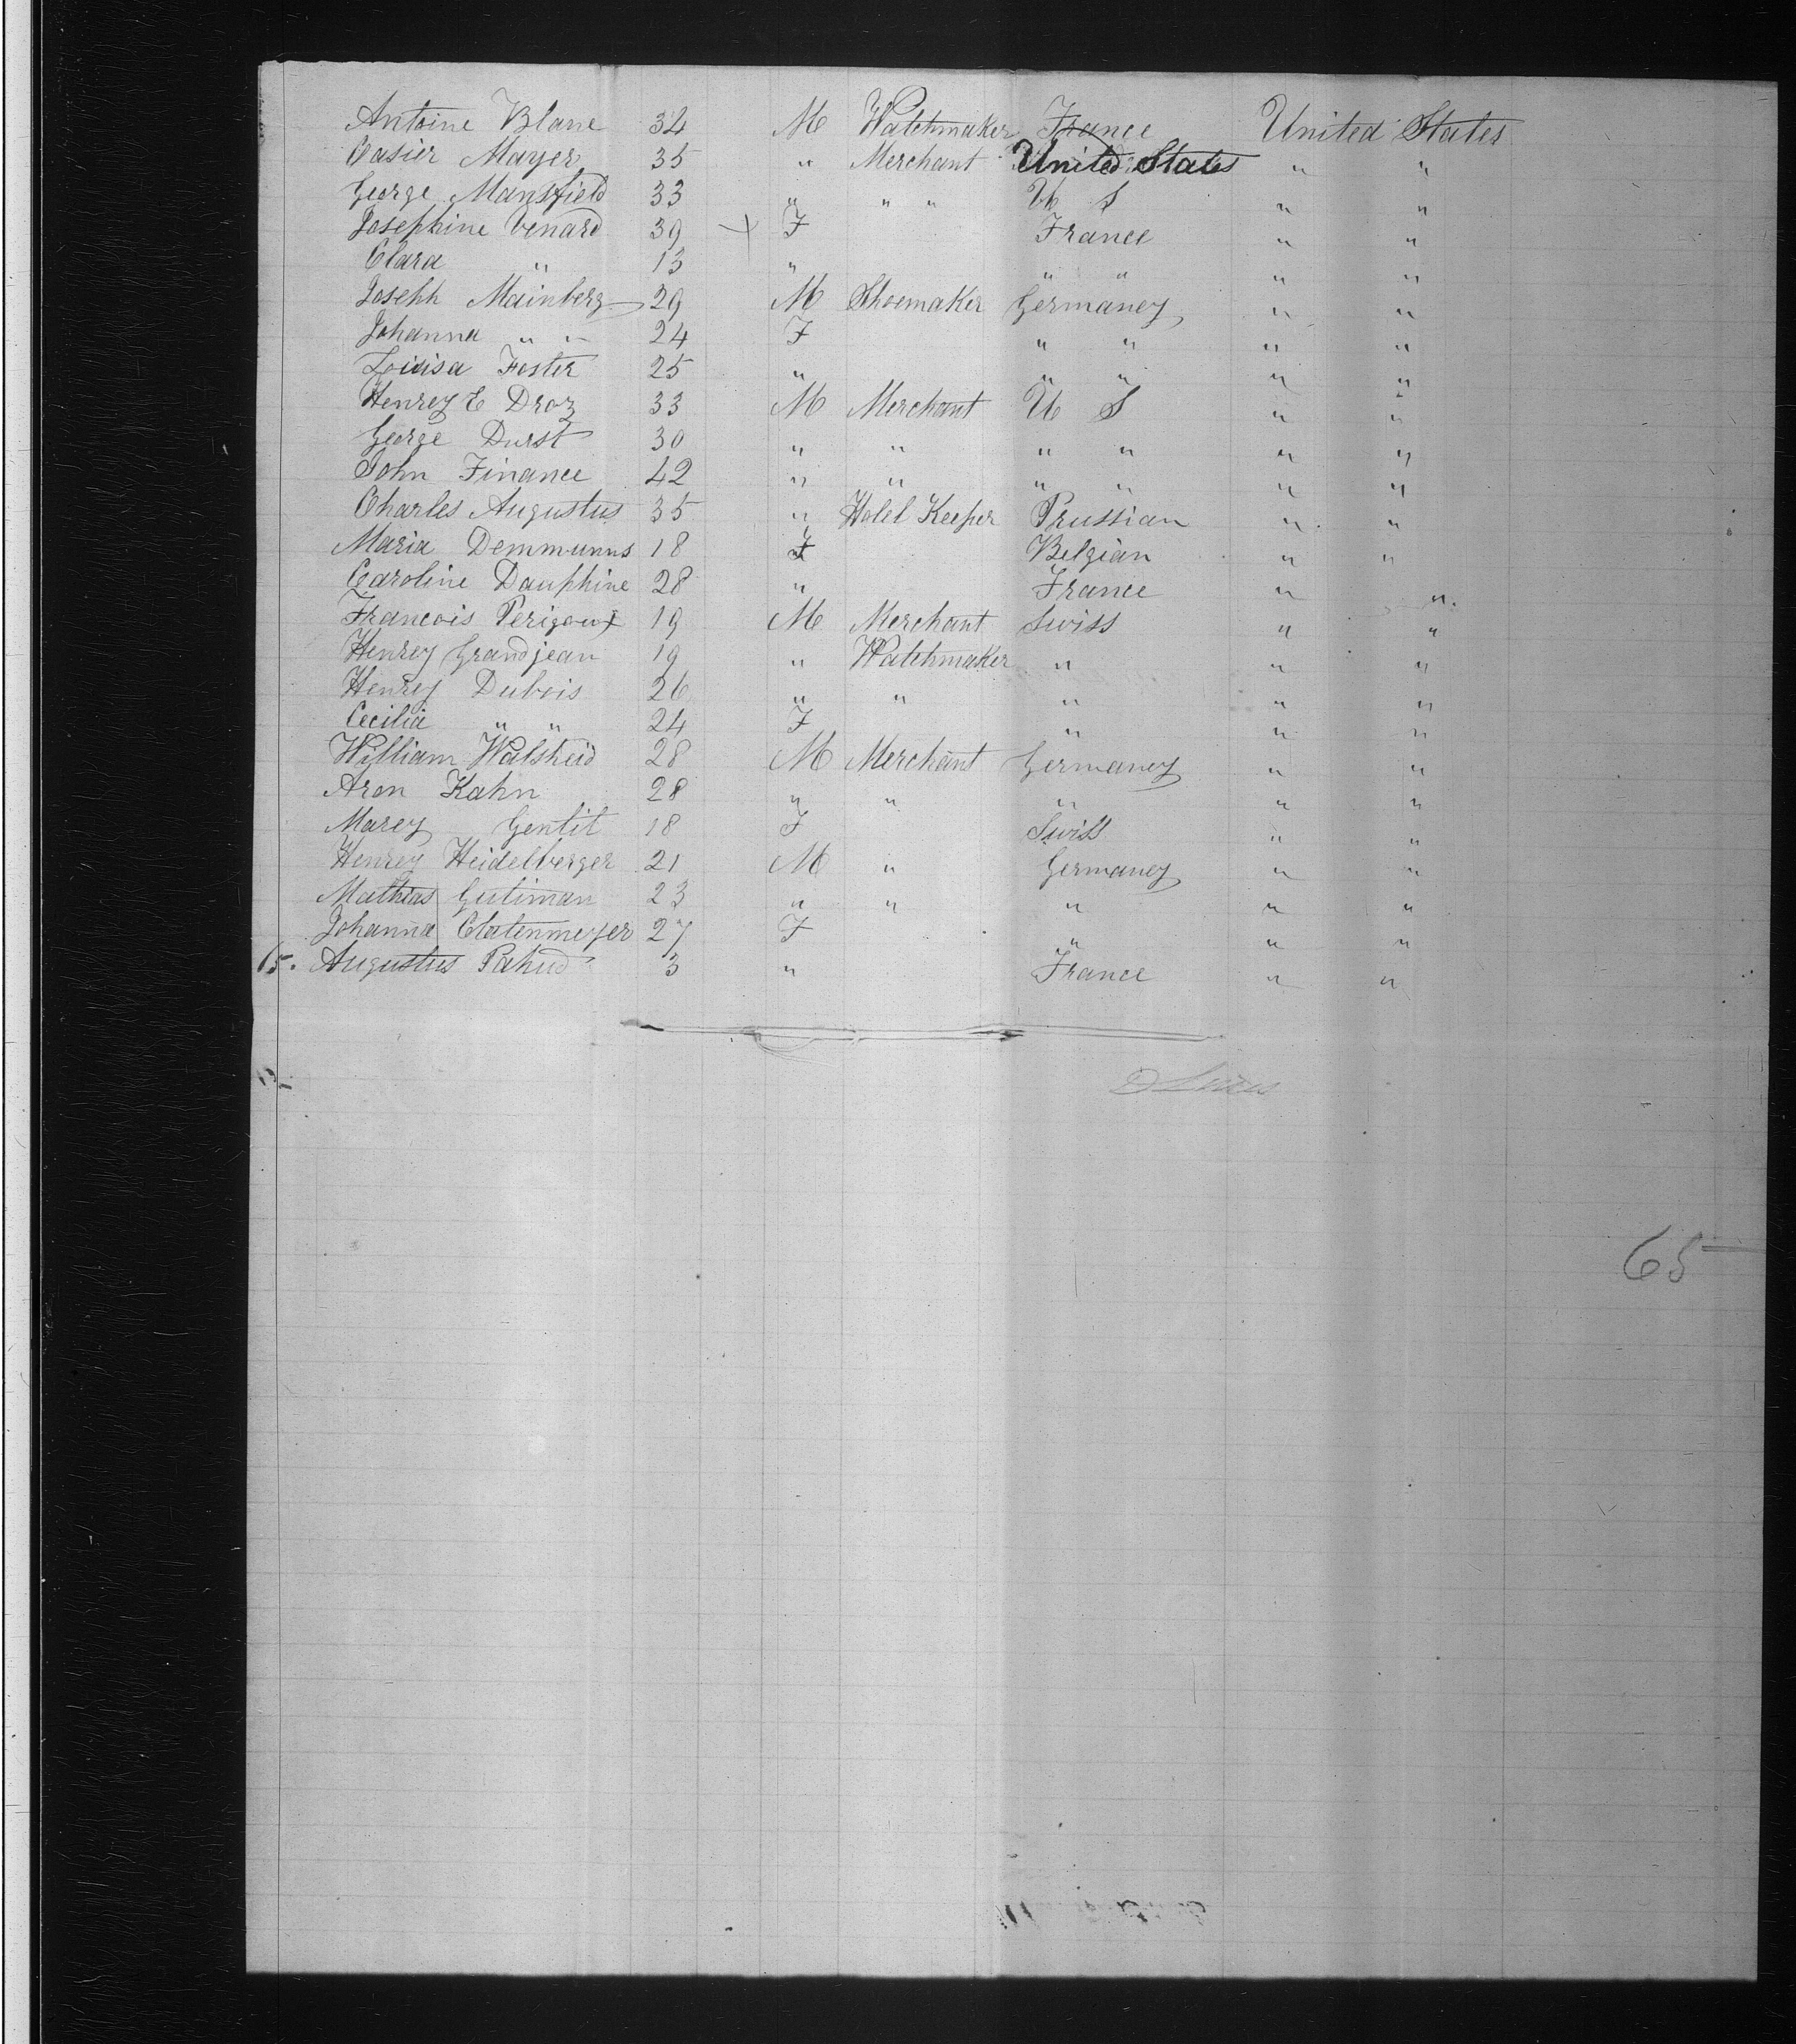 Antoine Blanc 34 M Watchmaker France United States
Casier Mayer 35 " Merchant United States " "
George Mansfield 33 " " " U S " "
Josephine Venard 39 + F France " "
Clara " 13 " " " " "
Joseph Mainberg 29 M Shoemaker Germaney " "
Johanna " " 24 F " " " "
Louisa Foster 25 " " " " "
Henrey E Droz 33 M Merchant U S " "
George Durst 30 " " " " " "
John Finance 42 " " " " " "
Charles Augustus 35 " Hotel Keeper Prussian " "
Maria Demmunns 18 F Belgian " "
Caroline Dauphine 28 " France " "
Francois Perigoux 19 M Merchant Swiss " "
Henrey Grandjean 19 " Watchmaker " " "
Henrey Dubois 26 " " " " "
Cecilia " " 24 F " " "
William Walsheid 28 M Merchant Germaney " "
Aron Kahn 28 " " " " "
Marey Gentit 18 F Swiss " "
Henrey Heidelberger 21 M " Germaney " "
Mathias Gutiman 23 " " " " "
Johanna Clatenmeyer 27 F " " "
65. Augustus Pahud 3 " France " "
65